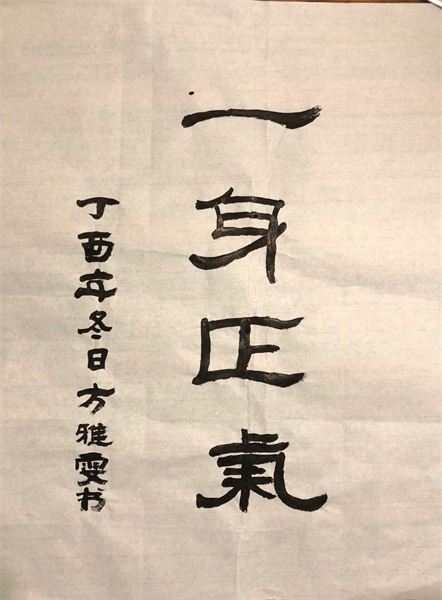 一身正氣
丁酉年冬日方雅雯书